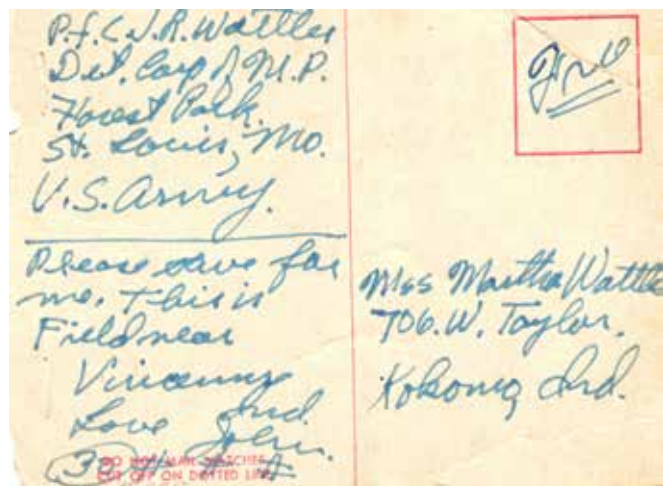 P.f.C. J.R. Wattles
Det. Corp of M.P.
Forest Park.
St. Louis, Mo.
U.S. Army.
Please save for
me. This is
Field near
Vincennes
Ind.
Love John.
DO NOT MAIL MATCHES
CUT OFF ON DOTTED LINE
Free
Miss Martha Wattle
706. W. Taylor.
Kokomo, Ind.